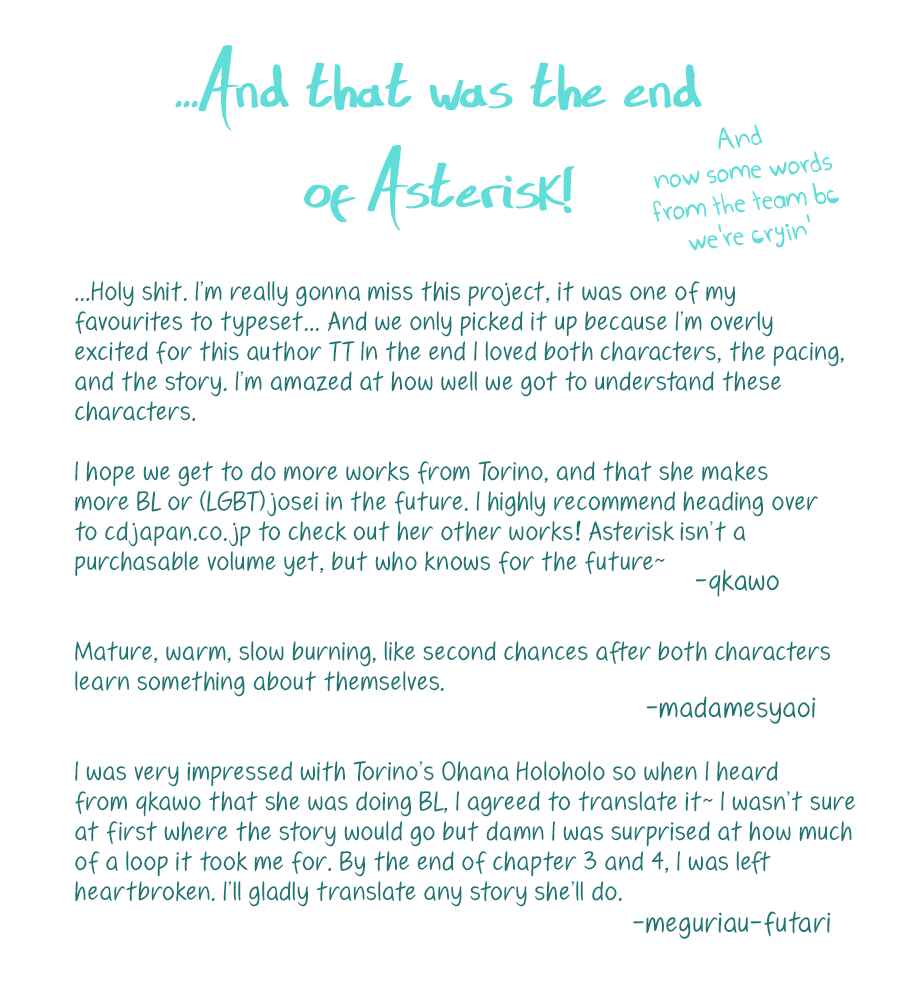 ...And that was the end
of Asterisk!
And
now some words
from the team bc
we're cryin'
...Holy shit. I'm really gonna miss this project, it was one of my
favourites to typeset... And we only picked it up because I'm overly
excited for this author TT In the end I loved both characters, the pacing,
and the story. I'm amazed at how well we got to understand these
characters.
I hope we get to do more works from Torino, and that she makes
more BL or (LGBT)josei in the future. I highly recommend heading over
to cdjapan.co.jp to check out her other works! Asterisk isn't a
purchasable volume yet, but who knows for the future~
-qkawo
Mature, warm, slow burning, like second chances after both characters
learn something about themselves.
-madamesyaoi
I was very impressed with Torino's Ohana Holoholo so when I heard
from qkawo that she was doing BL, I agreed to translate it~ I wasn't sure
at first where the story would go but damn I was surprised at how much
of a loop it took me for. By the end of chapter 3 and 4, I was left
heartbroken. I'll gladly translate any story she'll do.
-meguriau-futari